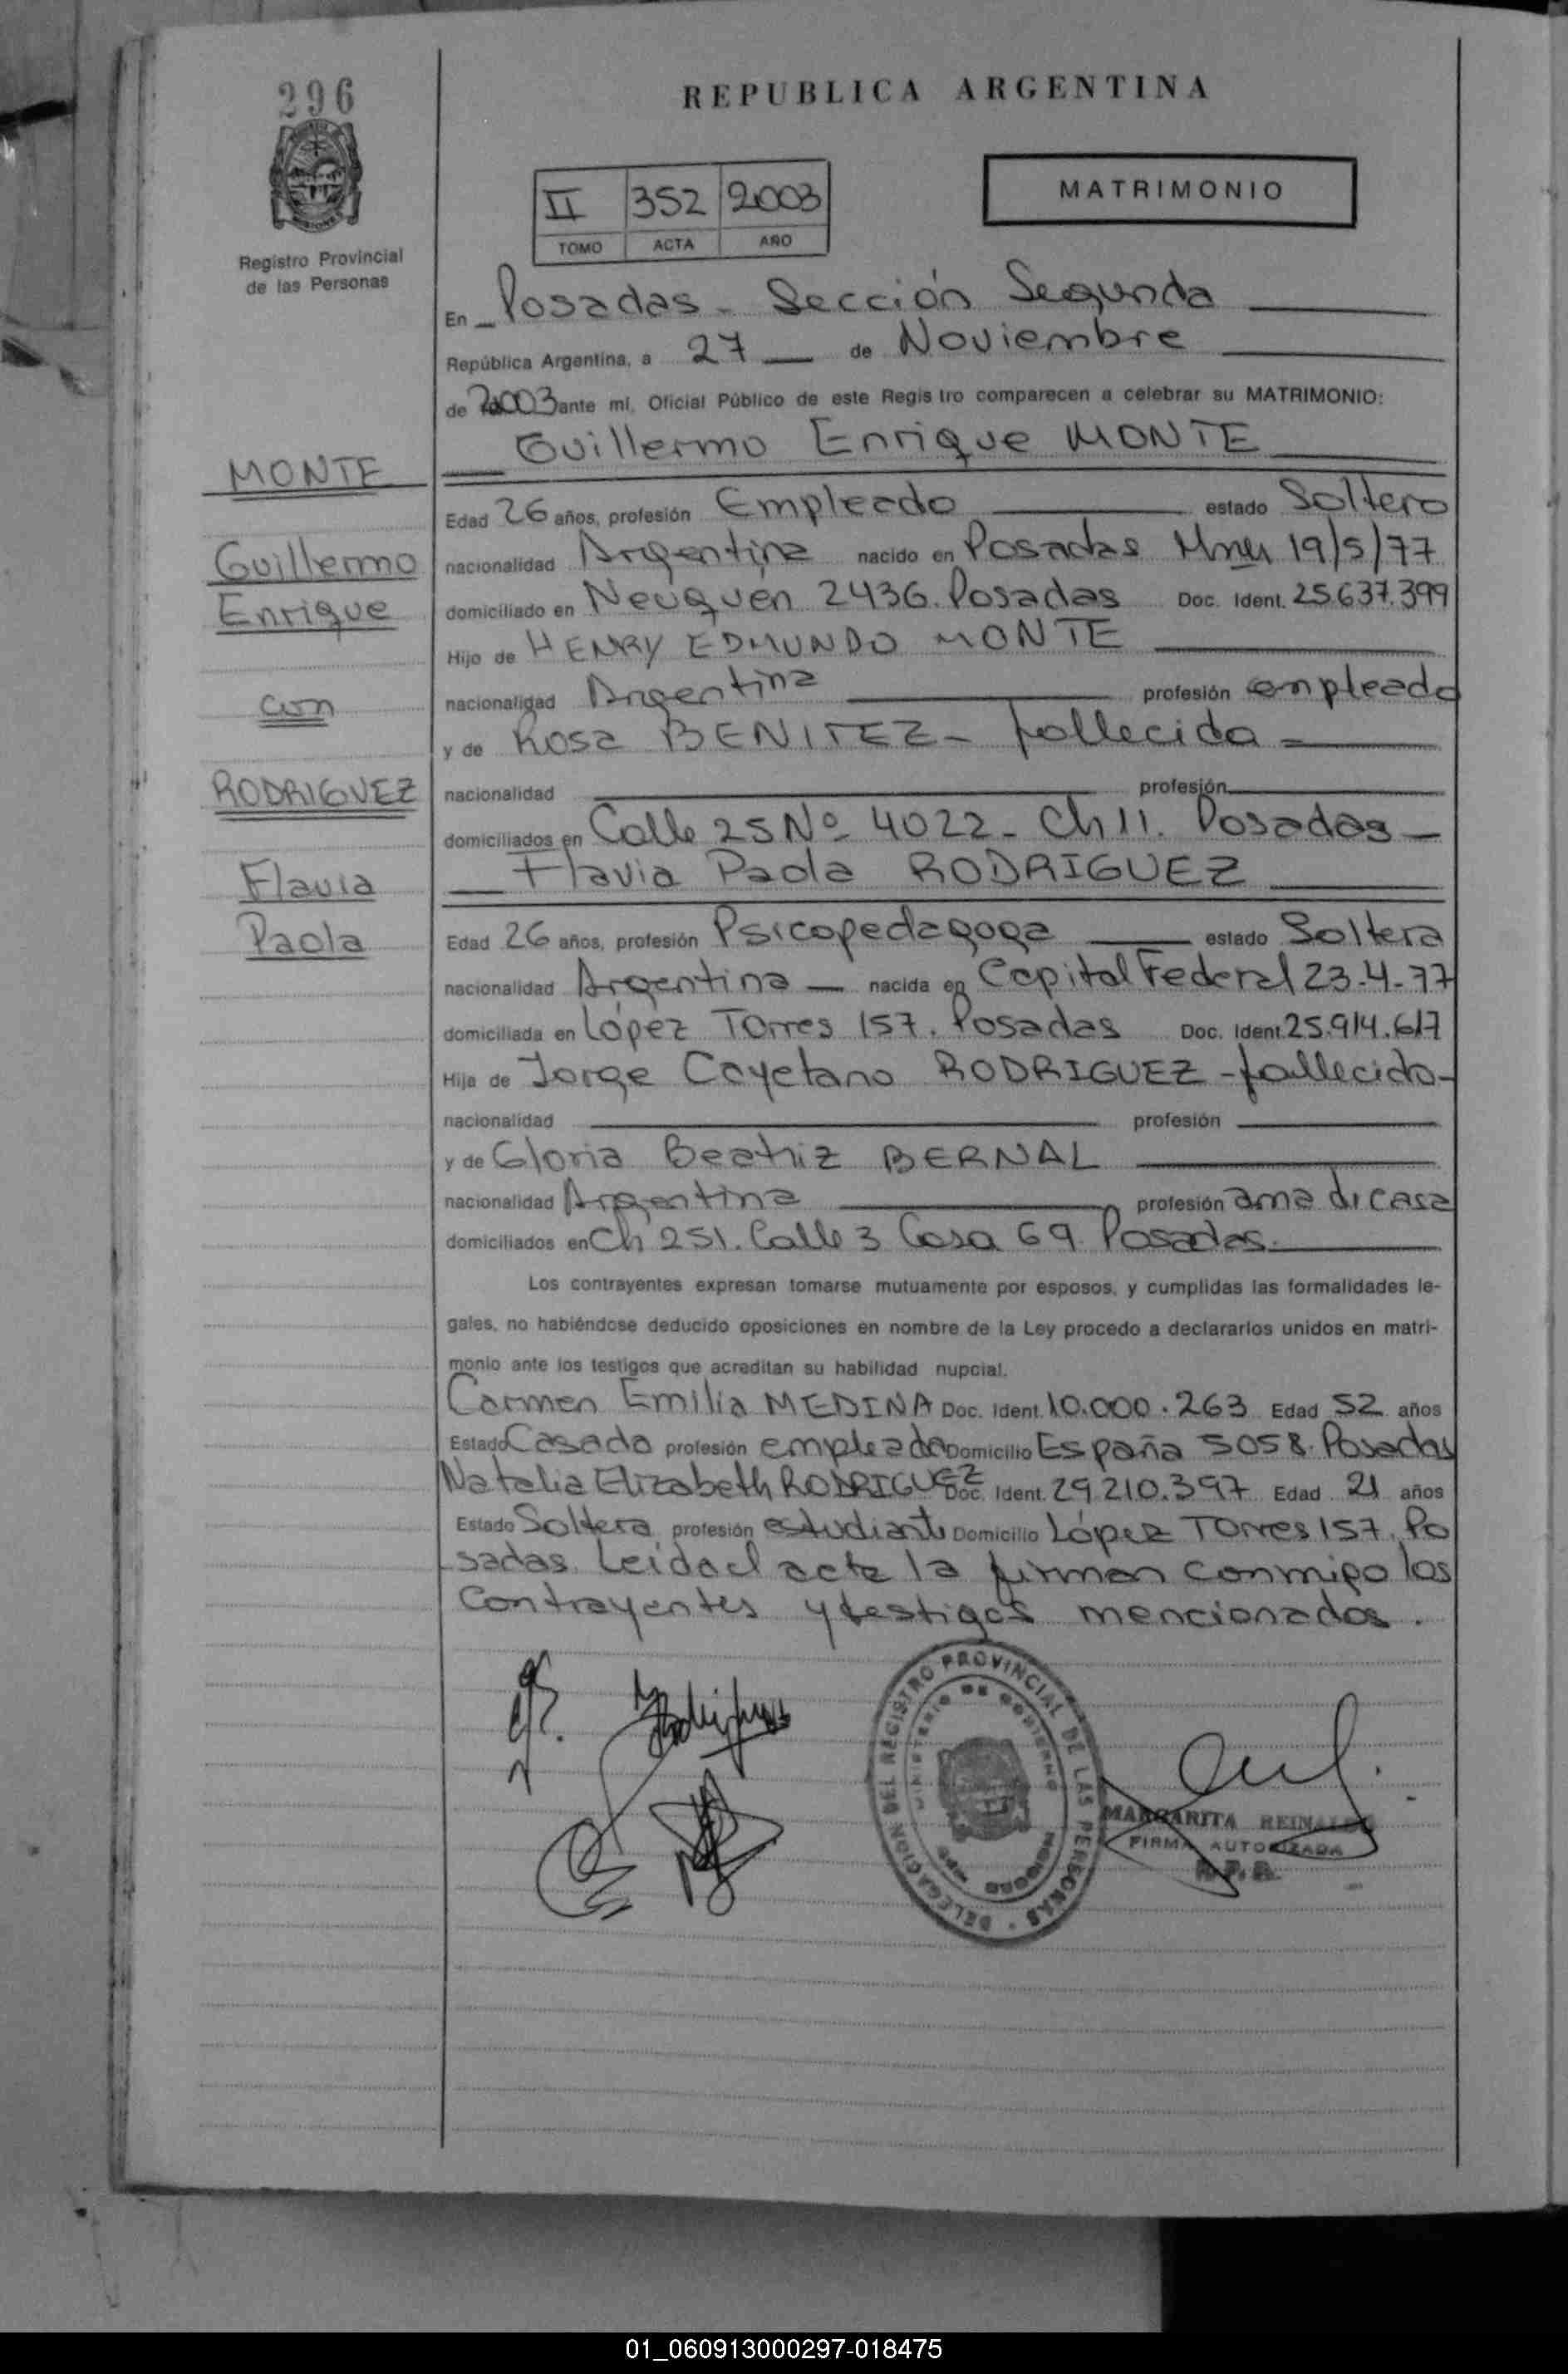 296
REPUBLICA ARGENTINA
II 352 2003
TOMO ACTA AÑO
MATRIMONIO
Registro Provincial
de las Personas
En Posadas - Sección Segunda
República Argentina, a 27 de Noviembre
de 2003 ante mí, Oficial Público de este Registro comparecen a celebrar su MATRIMONIO:
Guillermo Enrique MONTE
MONTE
Guillermo
Enrique
con
RODRIGUEZ
Flavia
Paola
Edad 26 años, profesión Empleado estado Soltero
nacionalidad Argentina nacido en Posadas Mnes 19/5/77
domiciliado en Neuquén 2436. Posadas Doc. Ident. 25.637.399
Hijo de HENRY EDMUNDO MONTE
nacionalidad Argentina profesión empleado
y de Rosa BENITEZ - fallecida
nacionalidad profesión
domiciliados en Calle 25 Nº 4022 - Ch 11. Posadas
Flavia Paola RODRIGUEZ
Edad 26 años, profesión Psicopedagoga estado Soltera
nacionalidad Argentina nacida en Capital Federal 23-4-77
domiciliada en López Torres 157. Posadas Doc. Ident. 25.914.617
Hija de Jorge Cayetano RODRIGUEZ - fallecido -
nacionalidad profesión
y de Gloria Beatriz BERNAL
nacionalidad Argentina profesión ama di casa
domiciliados en Ch 251. Calle 3 Casa 69. Posadas.
Los contrayentes expresan tomarse mutuamente por esposos, y cumplidas las formalidades le-
gales, no habiéndose deducido oposiciones en nombre de la Ley procedo a declararlos unidos en matri-
monio ante los testigos que acreditan su habilidad nupcial.
Carmen Emilia MEDINA Doc. Ident. 10.000.263 Edad 52 años
Estado Casada profesión empleada Domicilio España 5058. Posadas
Natalia Elizabeth RODRIGUEZ Doc. Ident. 29.210.397 Edad 21 años
Estado Soltera profesión estudiante Domicilio López Torres 157. Po
sadas. Leida el acta la firman conmigo los
contrayentes y testigos mencionados.
DELEGACION DEL REGISTRO PROVINCIAL DE LAS PERSONAS
MINISTERIO DE GOBIERNO
MARGARITA
FIRMA AUTORIZADA
R.P.P.
01_060913000297-018475